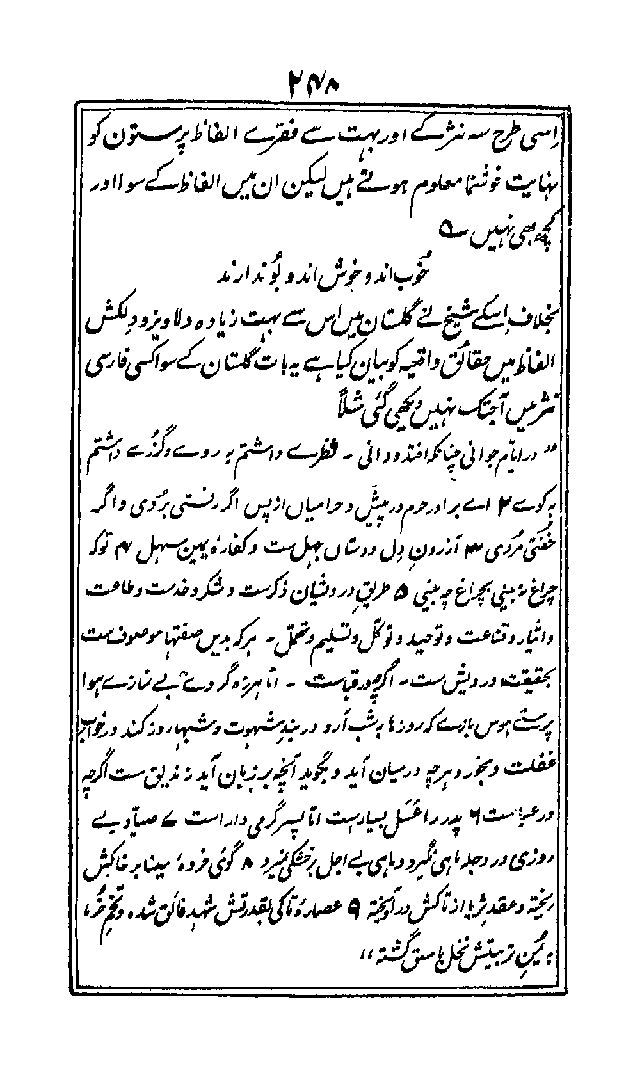 ۲۴۸
اِسی طرح سہ نثر کے اور بہت سے فقرے الفاظ پرستون کو
نہایت خوشنما معلوم ہوتے ہیں لیکن ان میں الفاظ کے سوا اور
کچھ بھی نہیں ؎
خوب اند و خوش اند و بُو ندارند
بخلاف اِسکے شیخ نے گلستان میں اس سے بہت زیادہ دلاویز و دلکش
الفاظ میں حقائق واقعیہ کو بیان کیا ہے یہ بات گلستان کے سوا کسی فارسی
نثر میں آجتک نہیں دیکھی گئی مثلاً
"در ایّام جوانی چنانکہ افتد و دانی ۔ نظرے داشتم بہ روے و گذرے داشتم
بہ کوے ۲ اے برادر حرم در پیش و حرامیان از پس اگر رفتی بُردی و اگر
خفتی مُردی ۳ آزردنِ دل دوستاں جہل ست و کفارۂ یمین سہل ۴ تو کہ
چراغ نہ بینی بچراغ چہ بینی ۵ طریق درویشان ذکرست و شکر و خدمت و طاعت
و ایثار و قناعت و توحید و توکل و تسلیم و تحمل ۔ ہر کہ بدیں صفتہا موصوف ست
بحقیقت درویش ست ۔ اگرچہ در قباست ۔ امّا ہرزہ گردے بے نمازے ہوا
پرستے ہوس بازے کہ روزہا بشب آرد در بندِ شہوت و شبہا روز کند در خوابِ
غفلت و بخورد ہرچہ درمیان آید و بگوید آنچہ بر زبان آید زندیق ست اگرچہ
در عباست ۶ پدر را عسل بسیارست امّا پسر گرمی دار است ۷ صیّاد بے
روزی در دجلہ ماہی نگیرد و ماہی بے اجل بر خشکی نمیرد ۸ گوئی خردۂ مینا بر خاکش
ریختہ و عقد ثریا از تاکش در آویختہ ۹ عصارۂ تاکی بقدرتش شہد فائق شدہ و تخم خرما
بہ یُمنِ تربیتش نخل باسق گشتہ"